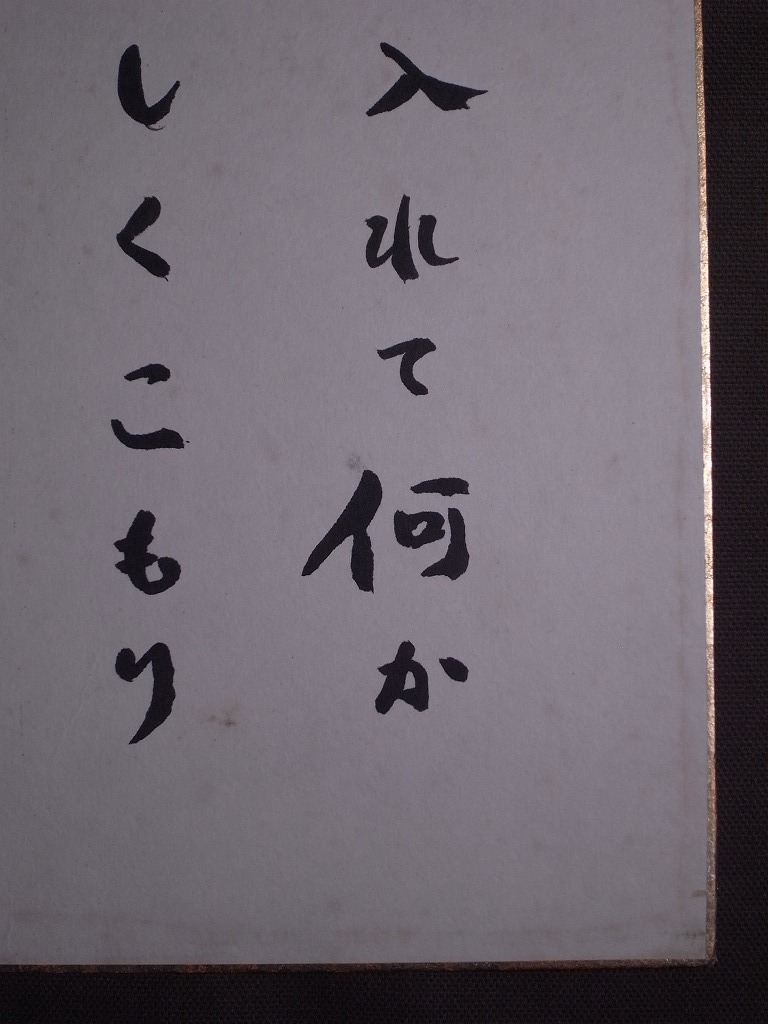 入れて何か
しくこもり